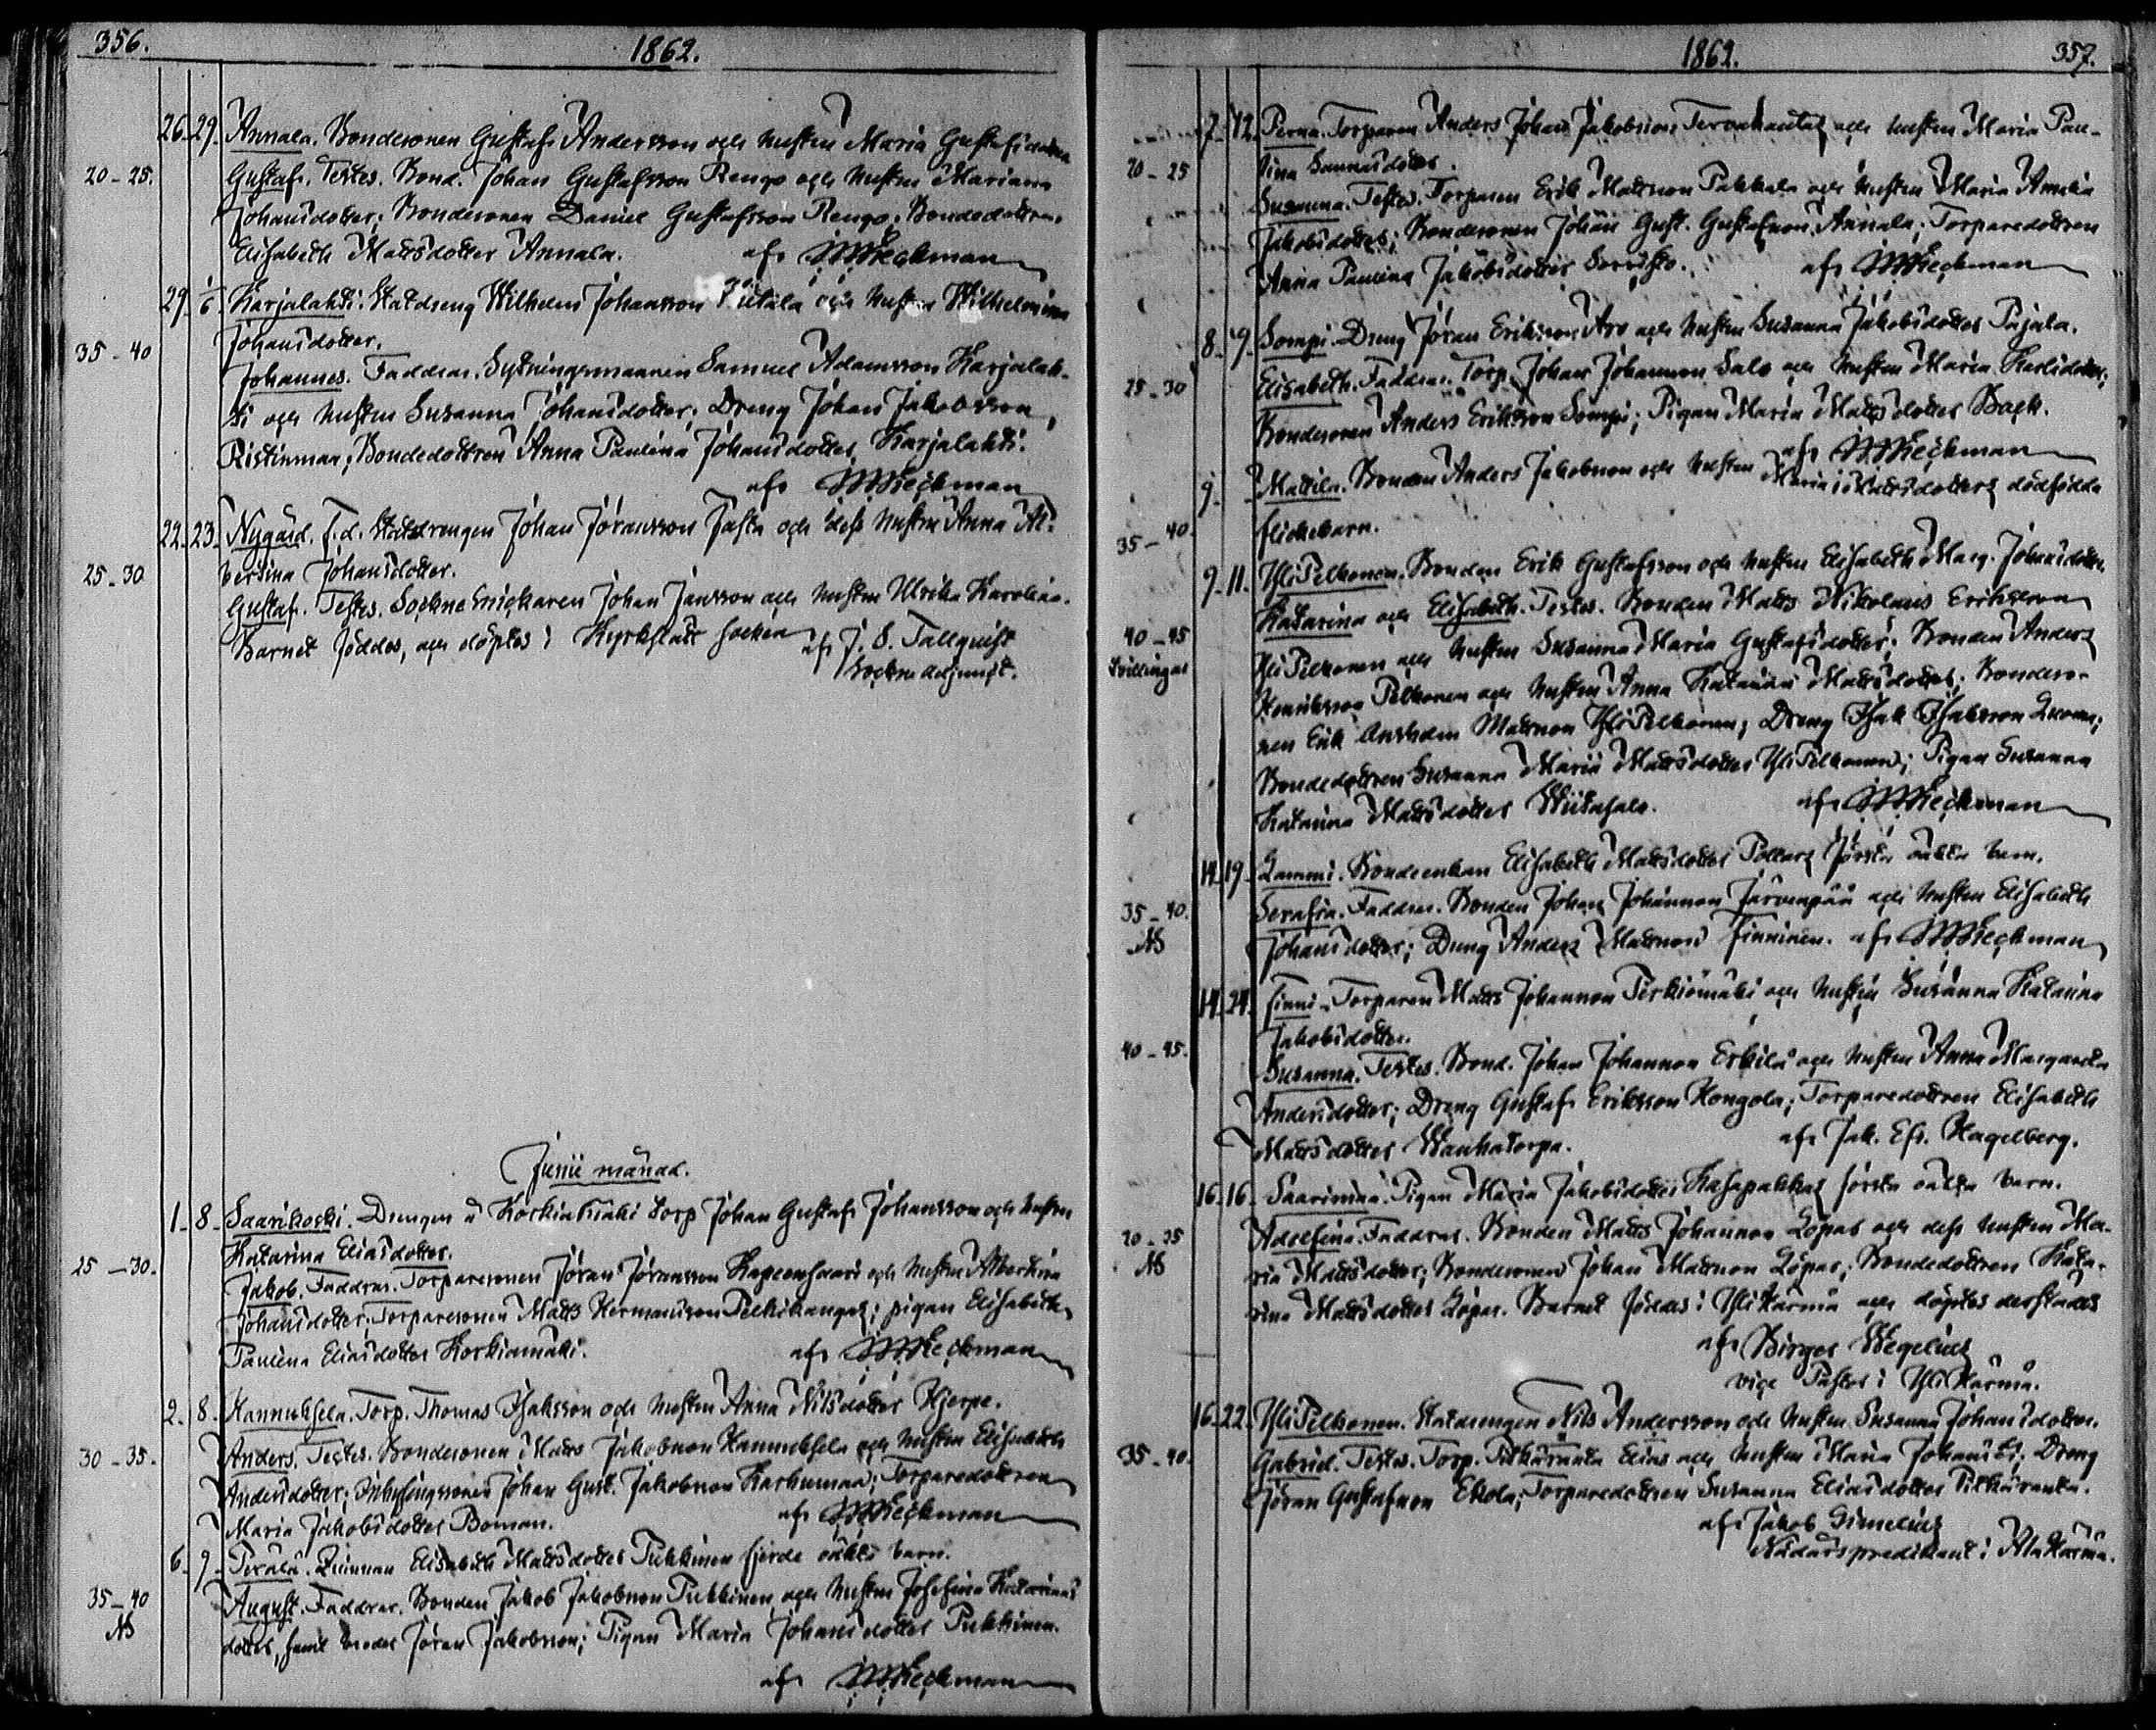 356.
1862.
26. 29. Annala. Bondesonen Gustaf Andersson och hustru Maria Gustafsdotter
20-25. Gustaf. Testes. Bond. Johan Gustafsson Rengo och hustru Mariana
Johansdotter; Bondesonen Daniel Gustafsson Rengo. Bondedottren
Elisabeth Mattsdotter Annala. af Wieckman
29. 6. Karjalahti. Statdreng Wilhelm Johansson och hustru Wilhelmina
Johansdotter.
35-40 Johannes. Faddrar. Sytningsmannen Samuel Adamsson Karjalah-
ti och hustru Susanna Johansdotter; Dreng Johan Jakobsson
Ristinmaa; Bondedottren Anna Paulina Johansdotter Karjalahti.
af Wieckman
22. 23. Nygård. f.d. Statdrengen Johan Jöransson och dess hustru Anna Al-
bertina Johansdotter.
25-30 Gustaf. Testes. Sockne Snickaren Johan Jansson och hustru Ulrika Karolina.
Barnet föddes, och döptes i Kyrkslätt socken af J. S. Tallquist
Sockneadjunct.
Junii månad.
1. 8. Saarikoski. Drengen å Korkiakiaki torp Johan Gustaf Johansson och hustru
Katarina Eliasdotter.
25-30. Jakob. Faddrar. Torparesonen Jöran Jöransson och hustru Albertina
Johansdotter; Torparesonen Matts Hermansson; pigan Elisabeth
Paulina Eliasdotter Korkiamäki. af Wieckman
2. 8. Hannuksela. Torp. Thomas Isaksson och hustru Anna Nilsdotter Hjerpe.
30-35. Anders. Testes. Bondesonen Matts Jakobsson Hannuksela och hustru Elisabeth
Andersdotter; Inhysingssonen Johan Gust. Jakobsson Karhumaa; Torparedottren
Maria Jakobsdotter Boman. af Wieckman
6. 9. Perälä. Quinnan Elisabeth Mattsdotter Pukkinen fjerde oäkta barn.
35-40 August. Faddrar. Bonden Jakob Jakobsson Pukkinen och hustru Josefina Katarina
NB dotter, samt broder Jöran Jakobsson; Pigan Maria Johansdotter Pukkinen.
af Wieckman
1862.
357.
7. 12. Perna. Torparen Anders Johan Jakobsson Tervahauta och hustru Maria Pau-
lina Samuelsdotter.
20-25 Susanna. Testes. Torparen Erik Mattsson Pukkala och hustru Maria Amalia
Jakobsdotter; Bondesonen Johan Gust. Gustafsson Annala; Torparedottren
Anna Paulina Jakobsdotter. af Wieckman
8. 9. Sompi. Dreng Jöran Eriksson Aro och hustru Susanna Jakobsdotter Pajala.
25-30 Elisabeth. Faddrar. Torp. Johan Johansson Salo och hustru Maria Karlsdotter;
Bondesonen Anders Eriksson Sompi; Pigan Maria Mattsdotter Back.
af Wieckman
9. Mattila. Bonden Anders Jakobsson och hustru Maria Mattsdotters dödfödda
35-40. flickebarn.
9. 11. YliPelkonen. Bonden Erik Gustafsson och hustru Elisabeth Marg. Johansdotter.
Katarina och Elisabeth. Testes. Bonden Matts Nikolaus Eriksson
40-45 YliPelkonen och hustru Susanna Maria Gustafsdotter; Bonden Anders
Tvillingar Henriksson Pelkonen och hustru Anna Katarina Mattsdotter; Bondeso-
nen Erik Anshelm Mattsson YliPelkonen; Dreng Isak Isaksson Luoma;
Bondedottren Susanna Maria Mattsdotter YliPelkonen; Pigan Susanna
Katarina Mattsdotter Wiitasalo. af Wieckman
14. 19. Lammi. Bondeenkan Elisabeth Mattsdotter Pottars första oäkta barn.
35-40. Serafia. Faddrar. Bonden Johan Johansson Järvenpää och hustru Elisabeth
NB Johansdotter; Dreng Anders Mattsson Finninen. af Wieckman
14. 24. Finni. Torparen Matts Johansson Perkiömäki och hustru Susanna Katarina
Jakobsdotter.
40-45. Susanna. Testes. Bond. Johan Johansson Erkilä och hustru Anna Margareta
Andersdotter; Dreng Gustaf Eriksson Kongola; Torparedottren Elisabeth
Mattsdotter Wanhatorpa. af Jak. Ef. Hagelberg.
16. 16. Saarimaa. Pigan Maria Jakobsdotter Kasapakkas första oäkta barn.
20-25 Adolfina. Faddrar. Bonden Matts Johansson Löpar och dess hustru Ma-
NB ria Mattsdotter; Bondesonen Johan Mattsson Löpar; Bondedottren Kata-
rina Mattsdotter Löpar. Barnet föddes i YliHärmä och döptes derstädes
af Birger Wegelius
vice Pastor i YliHärmä.
16. 22. YliPelkonen. Statdrengen Nils Andersson och hustru Susanna Johansdotter.
35-40. Gabriel. Testes. Torp. Pitkäranta Elias och hustru Maria Johansd:r; Dreng
Jöran Gustafsson Ekola; Torparedottren Susanna Eliasdotter Pitkäranta.
af Jakob Simelius
Nådårspredikant i AlaHärmä.